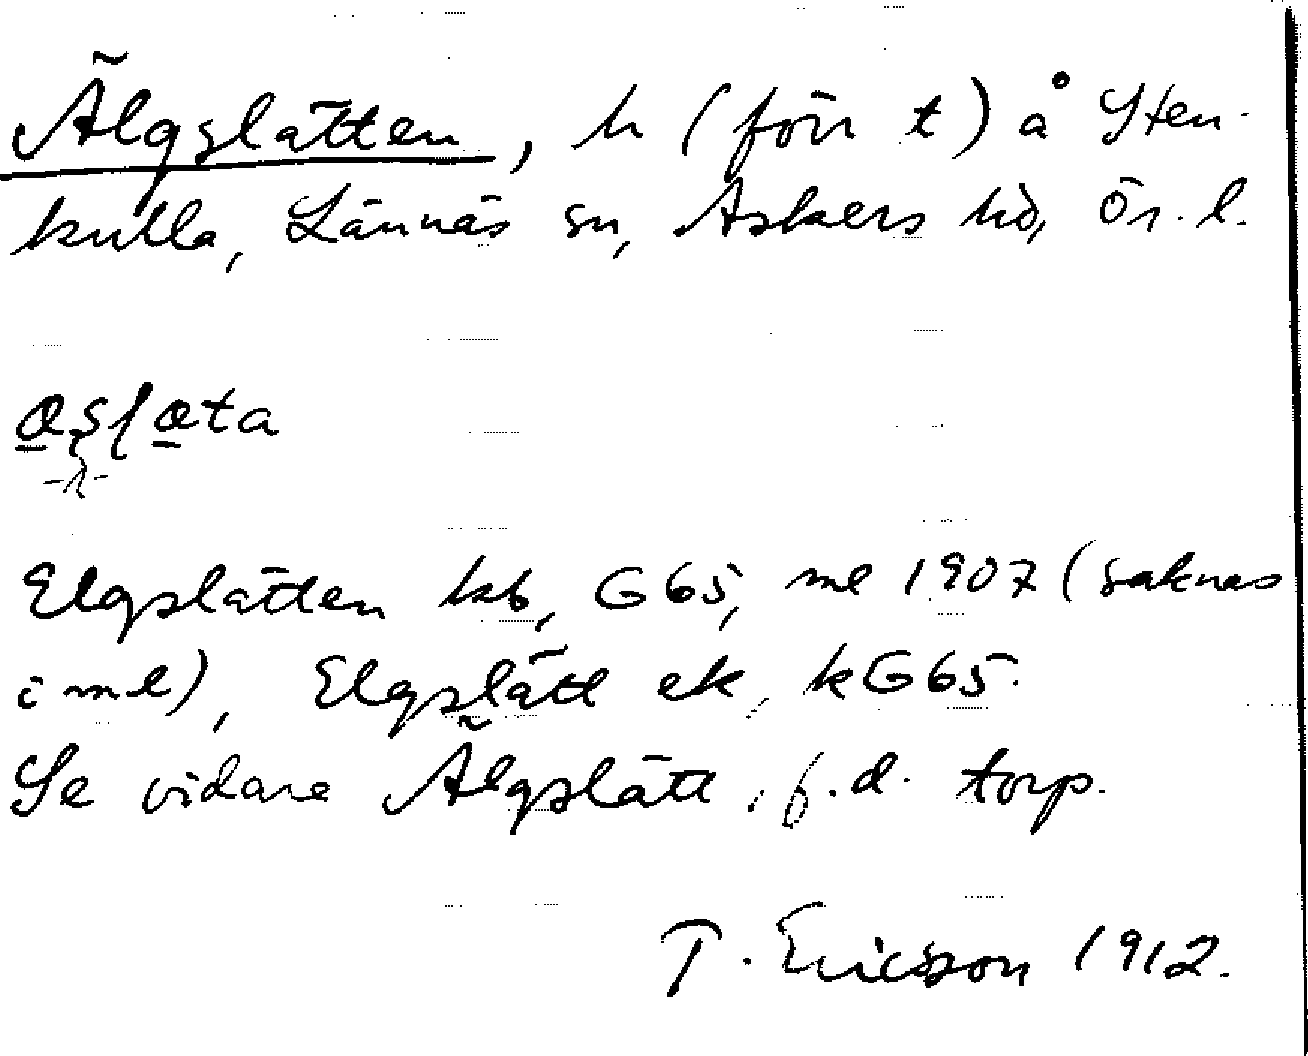 Älgslätten, h (förr t) å Sten-
kulla, Lännäs sn, Askers hd, Ör. l.
æslæta
Elgslätten kb, G65, ml 1907 (saknas
i ml), Elgslätt ek, kG65.
Se vidare Älgslätt, f.d. torp.
T. Ericsson 1912.